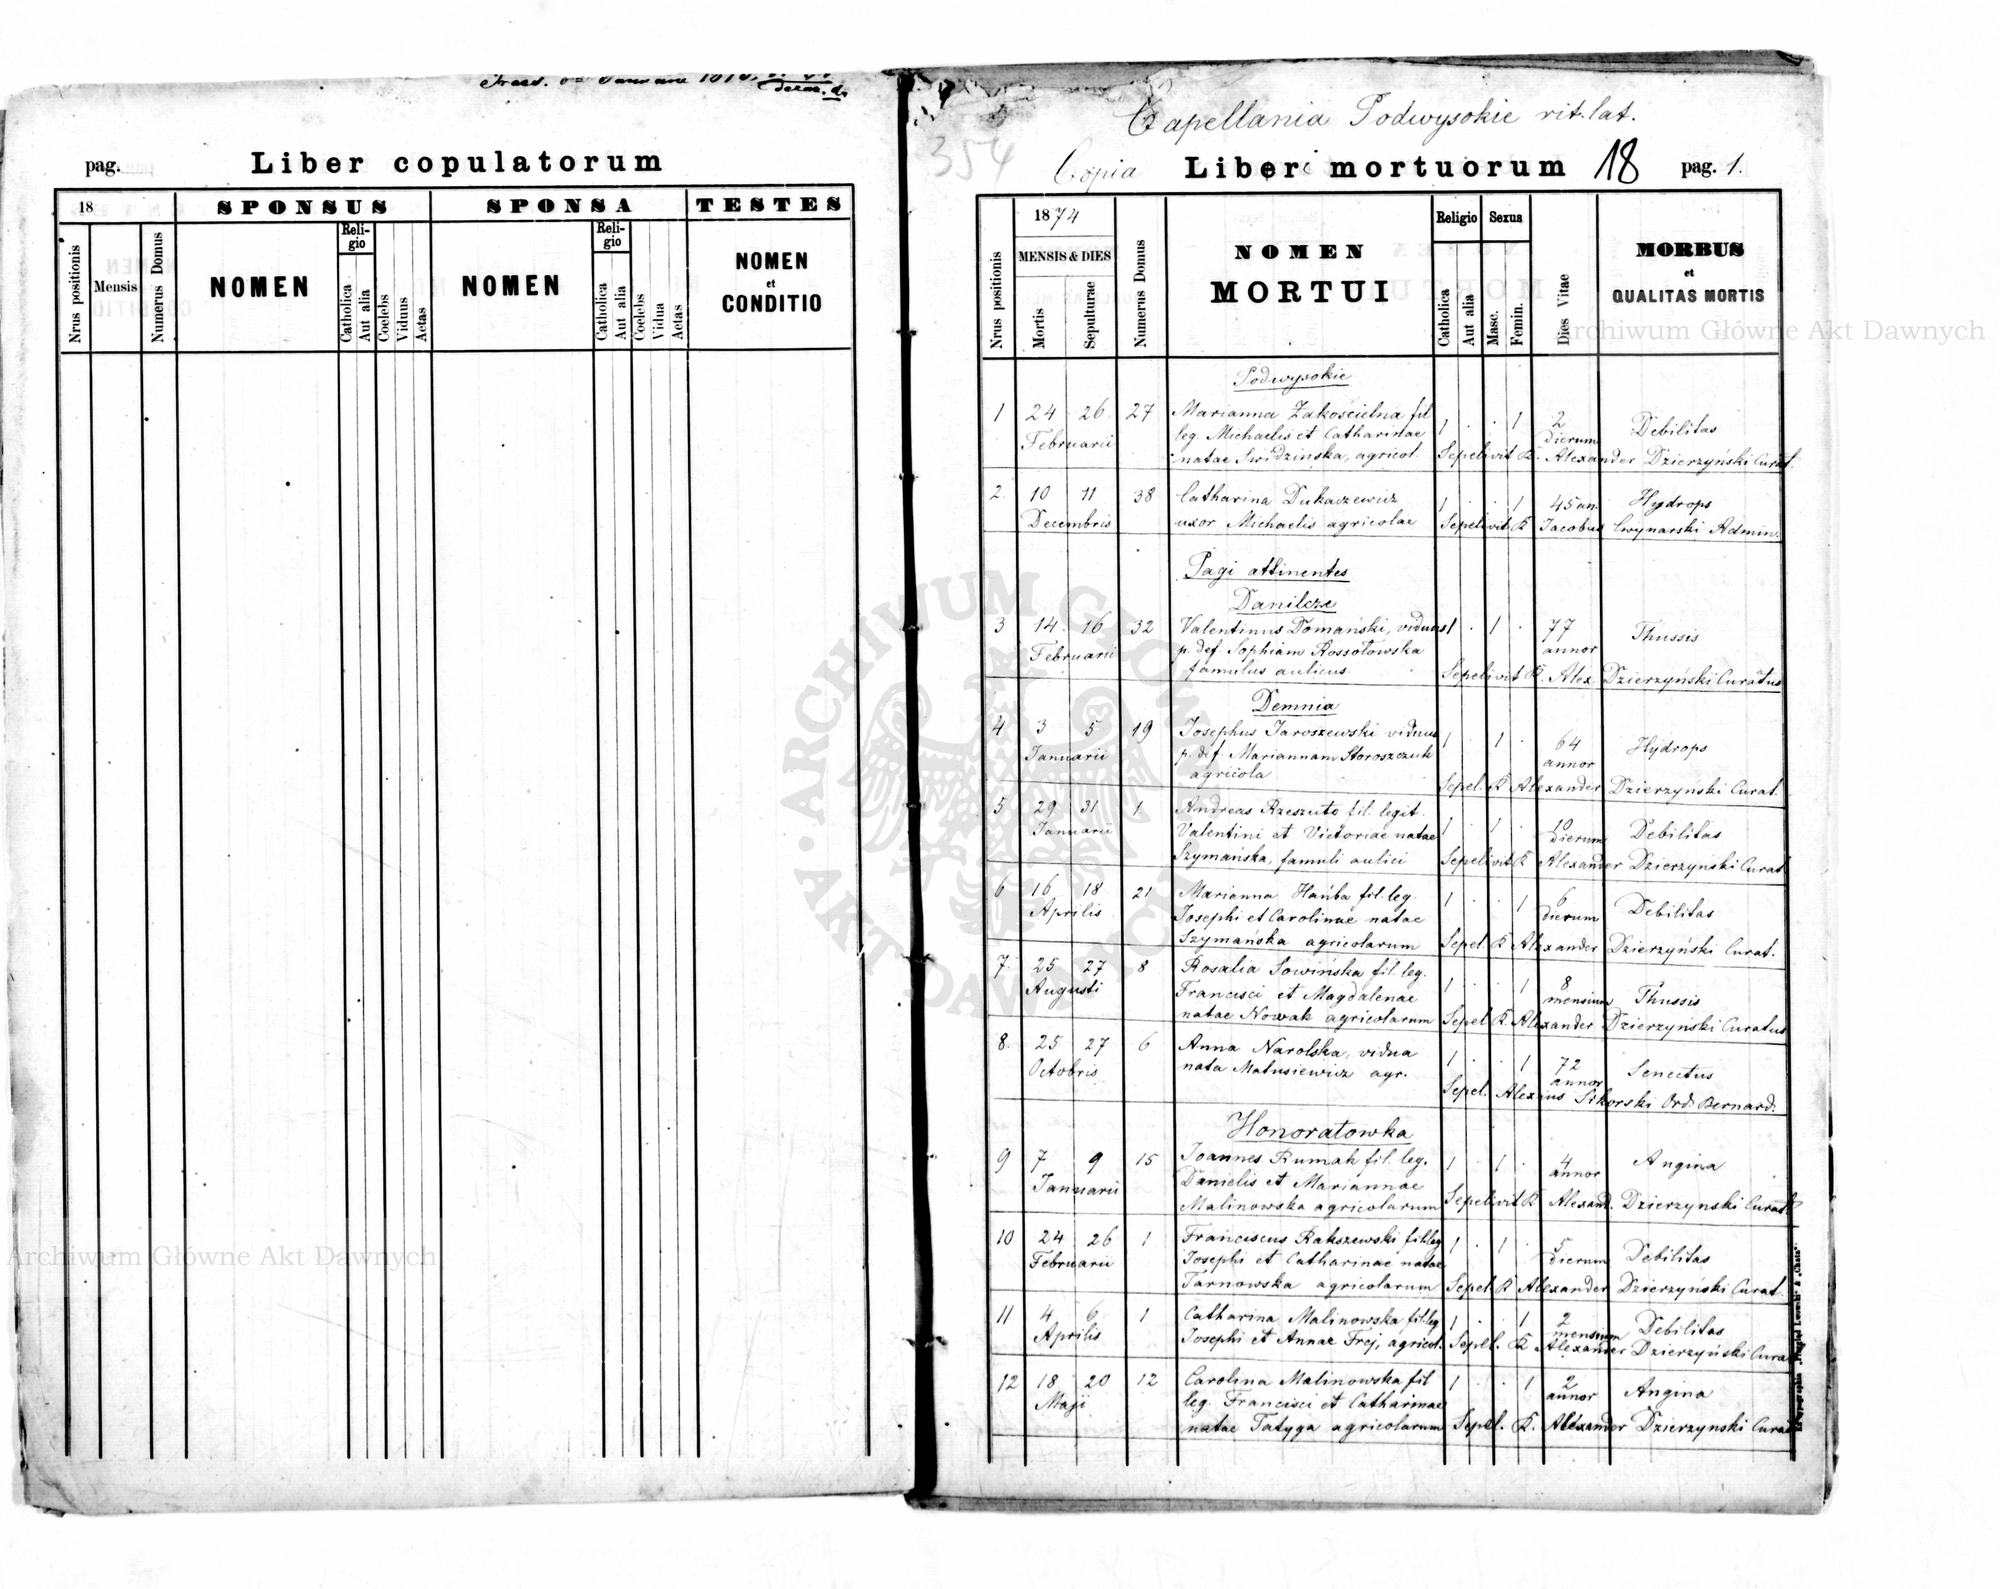 pag.
Liber copulatorum
18
SPONSUS
SPONSA
TESTES
Nrus positionis
Mensis
Numerus Domus
NOMEN
Reli-
gio
Catholica
Aut alia
Coelebs
Viduus
Aetas
NOMEN
Reli-
gio
Catholica
Aut alia
Coelebs
Vidua
Aetas
NOMEN
et
CONDITIO
Capellania Podwysokie rit. lat.
354
Copia Liberi mortuorum 18 pag. 1.
Nrus positionis
1874
MENSIS & DIES
Mortis
Sepulturae
Numerus Domus
NOMEN
MORTUI
Religio
Catholica
Aut alia
Sexus
Masc.
Femin.
Dies Vitae
MORBUS
et
QUALITAS MORTIS
Podwysokie
1 24 26 27 Marianna Zakościelna fil 1 . . 1 2 Debilitas
Februarii leg. Michaelis et Catharinae dierum
natae Swidzinska, agricol. Sepelivit R. Alexander Dzierzyński Curat.
2. 10 11 38 Catharina Dukaczewicz 1 . . 1 45 an. Hydrops
Decembris uxor Michaelis agricolae Sepelivit R Jacobus Cwynarski Admin.
Pagi attinentes
Danilcze
3 14 16 32 Valentinus Domański, viduus 1 . 1 . 77 Thussis
Februarii p. def. Sophiam Rossołowska annor
famulus aulicus. Sepelivit R. Alex. Dzierzyński Curatus
Demnia
4 3 5 19 Josephus Jaroszewski viduus 1 . 1 . 64 Hydrops
Januarii p. def Mariannam Storoszczuk annor
agricola Sepel. R Alexander Dzierzyński Curat.
5 29 31 1 Andreas Rzeszuto fil. legit. 1 . 1 . 10 Debilitas
Januarii Valentini et Victoriae natae dierum
Szymańska, famuli aulici Sepelivit R Alexander Dzierzyński Curat
6 16 18 21 Marianna Hańba fil. leg. 1 . . 1 6 Debilitas
Aprilis Josephi et Carolinae natae dierum
Szymańska agricolarum Sepel R Alexander Dzierzyński Curat.
7. 25 27 8 Rosalia Sowińska fil. leg. 1 . . 1 8 Thussis
Augusti Francisci et Magdalenae mensium
natae Nowak agricolarum Sepel R. Alexander Dzierzyński Curatus
8. 25 27 6 Anna Narolska, vidua 1 . . 1 72 Senectus
Octobris nata Matusiewicz agr. annor
Sepel. Alexius Sikorski Ord. Bernard.
Honoratowka
9 7 9 15 Joannes Rumak fil. leg. 1 . 1 . 4 Angina
Januarii Danielis et Mariannae annor
Malinowska agricolarum Sepelivit R Alexand. Dzierzynski Curat
10 24 26 1 Franciscus Rakszewski fil leg 1 . 1 . 5 Debilitas
Februarii Josephi et Catharinae natae dierum
Tarnowska agricolarum Sepel. R Alexander Dzierzyński Curat.
11 4 6 1 Catharina Malinowska fil leg 1 . . 1 2 Debilitas
Aprilis Josephi et Annae Frej, agricol. mensium
Sepel. R Alexander Dzierzyński Curat
12 18 20 12 Carolina Malinowska fil 1 . . 1 2 Angina
Maji leg. Francisci et Catharinae annor
natae Tatyga agricolarum Sepel. R. Alexander Dzierzynski Curat
Archiwum Główne Akt Dawnych
Archiwum Główne Akt Dawnych
ARCHIWUM GŁÓWNE
AKT DAWNYCH